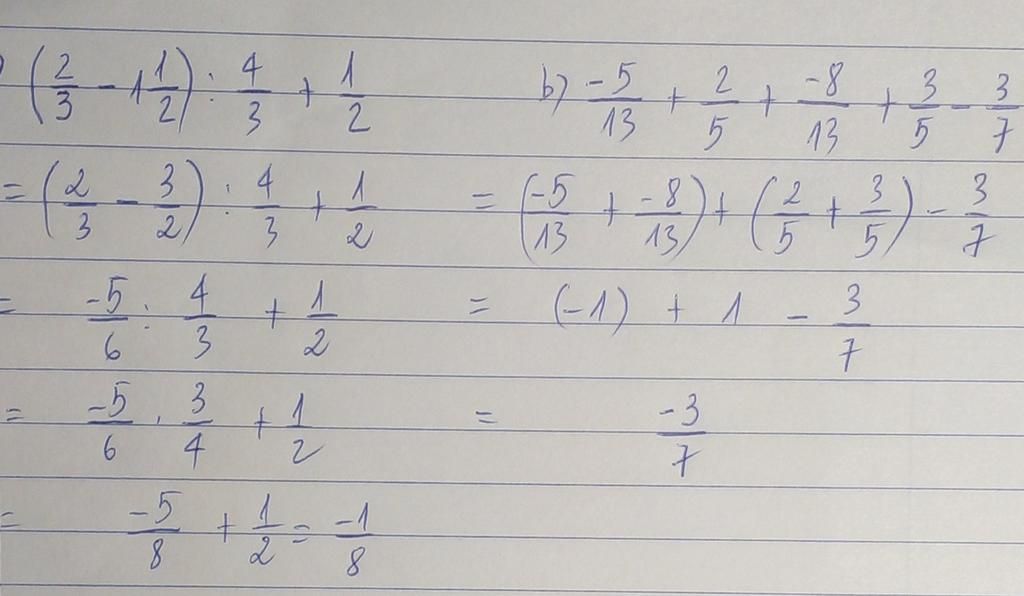 ) (2/3 - 1 1/2) : 4/3 + 1/2
= (2/3 - 3/2) : 4/3 + 1/2
= -5/6 : 4/3 + 1/2
= -5/6 . 3/4 + 1/2
= -5/8 + 1/2 = -1/8
b) -5/13 + 2/5 + -8/13 + 3/5 - 3/7
= (-5/13 + -8/13) + (2/5 + 3/5) - 3/7
= (-1) + 1 - 3/7
= -3/7